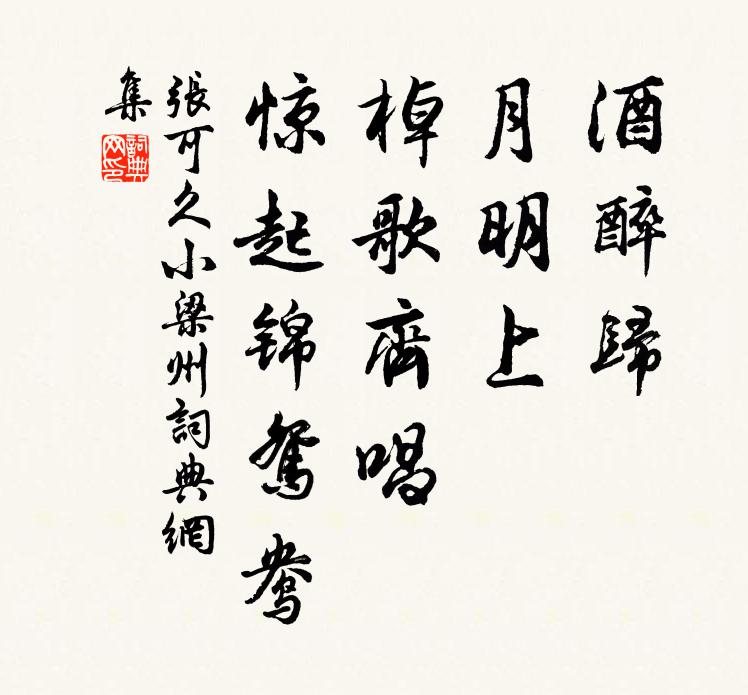 酒醉歸
月明上
棹歌齊唱
惊起锦鴛鴦
張可久小梁州詞典網
集
詞典
网印